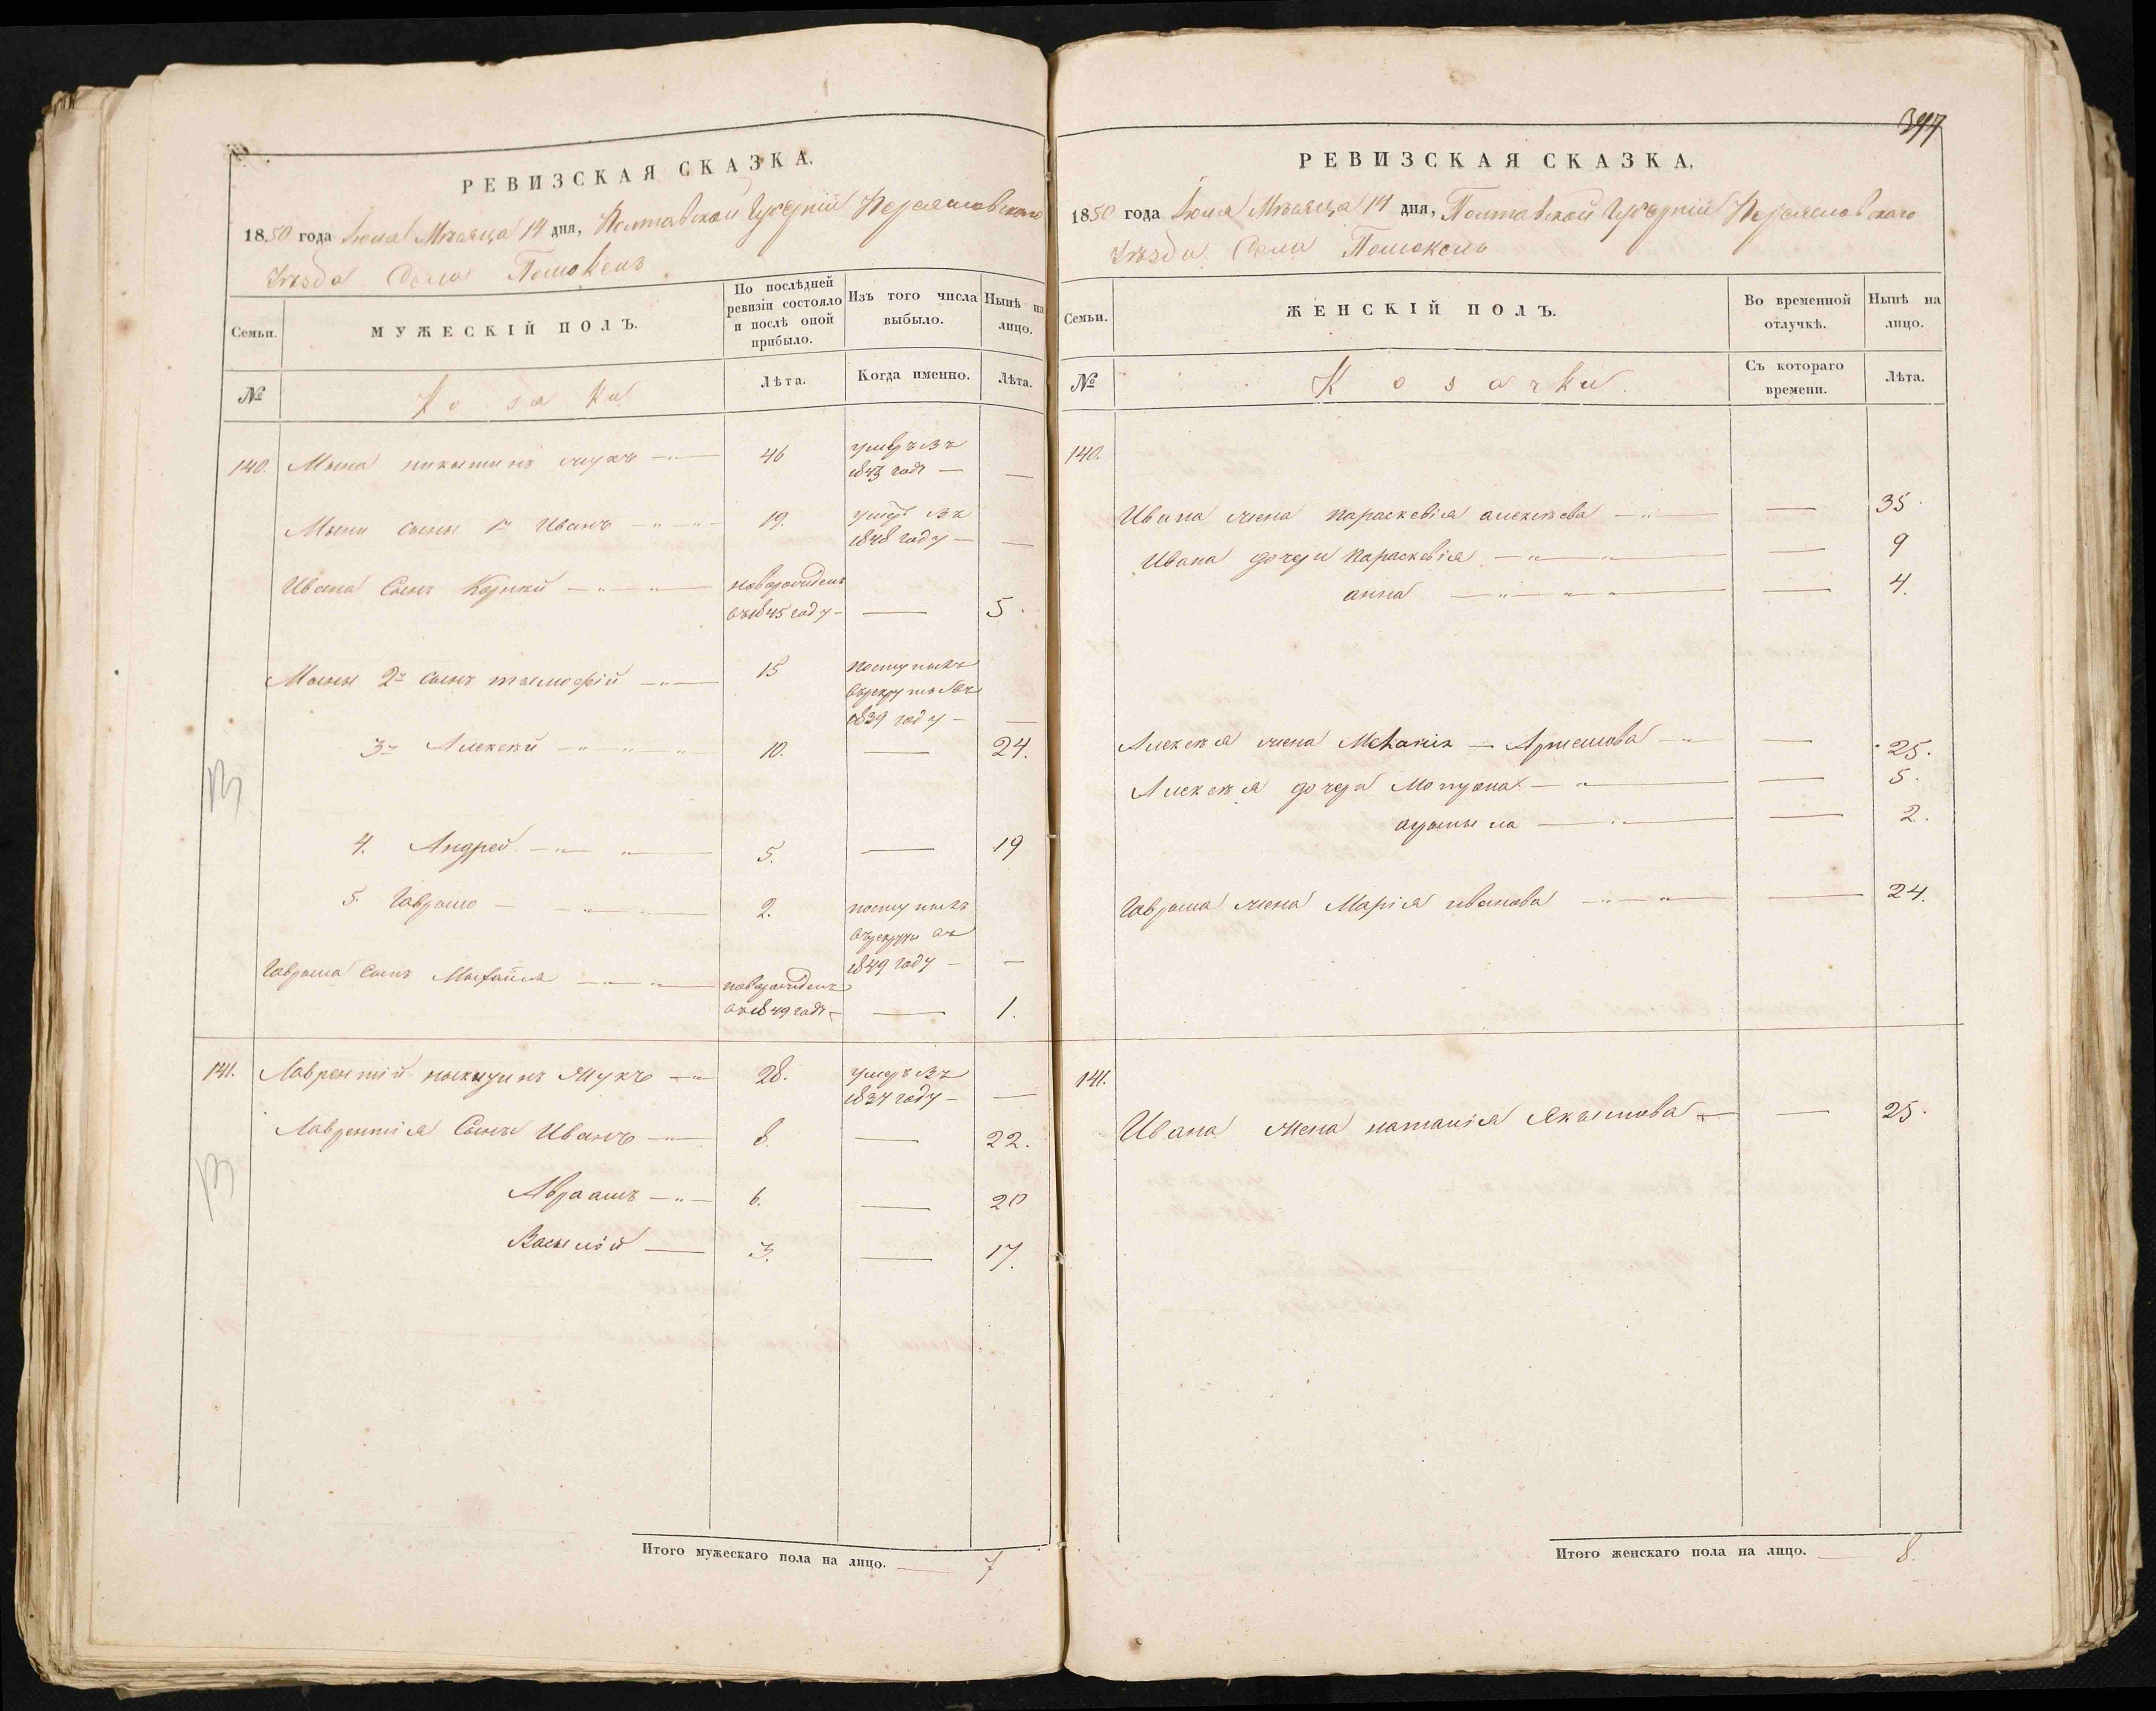 РЕВИЗСКАЯ СКАЗКА.
1850 года Іюля Мѣсяца 14 дня, Полтавской Губерніи Переяславскаго
Уѣзда Села Помоклей
Семьи.
МУЖЕСКІЙ ПОЛЪ.
По послѣдней ревизіи состояло и послѣ оной прибыло.
Изъ того числа выбыло.
Нынѣ на лицо.
№
Козаки
Лѣта.
Когда именно.
Лѣта.
140. Мына никитинъ жукъ 46 умеръ въ
1843 годѣ —
Мыны сыны 1й Иванъ 19. умеръ въ
1848 году —
Ивана Сынъ Корнѣй новорожденъ
въ 1845 году — 5.
Мыны 2й сынъ тымофій 15 поступилъ
въ рекруты въ
1839 году —
3й Алексѣй 10. — 24.
4. Андрей 5. — 19
5. Гаврыло 2. поступилъ
въ рекруты въ
1849 году —
Гаврыла Сынъ Михайла новорожденъ
въ 1849 годѣ — 1.
141. Лаврентій никитинъ Жукъ 28. умеръ въ
1837 году —
Лаврентія Сыны Иванъ 8. — 22.
Авраамъ 6. — 20
Васылій 3. — 17.
Итого мужескаго пола на лицо. — 7
397
РЕВИЗСКАЯ СКАЗКА.
1850 года Іюля Мѣсяца 14 дня, Полтавской Губерніи Переяславскаго
Уѣзда Села Помоклей
Семьи.
ЖЕНСКІЙ ПОЛЪ.
Во временной отлучкѣ.
Нынѣ на лицо.
№
Козачки
Съ котораго времени.
Лѣта.
140.
Ивана жена параскевія алексѣева — 35
Ивана дочери параскевія — 9
анна — 4.
Алексѣя жена Меланія Артемова — 25.
Алексѣя дочери Мотрона — 5.
2.
Гаврыла жена Марія иванова — 24.
141.
Ивана жена наталія Якымова — 25.
Итого женскаго пола на лицо. — 8.